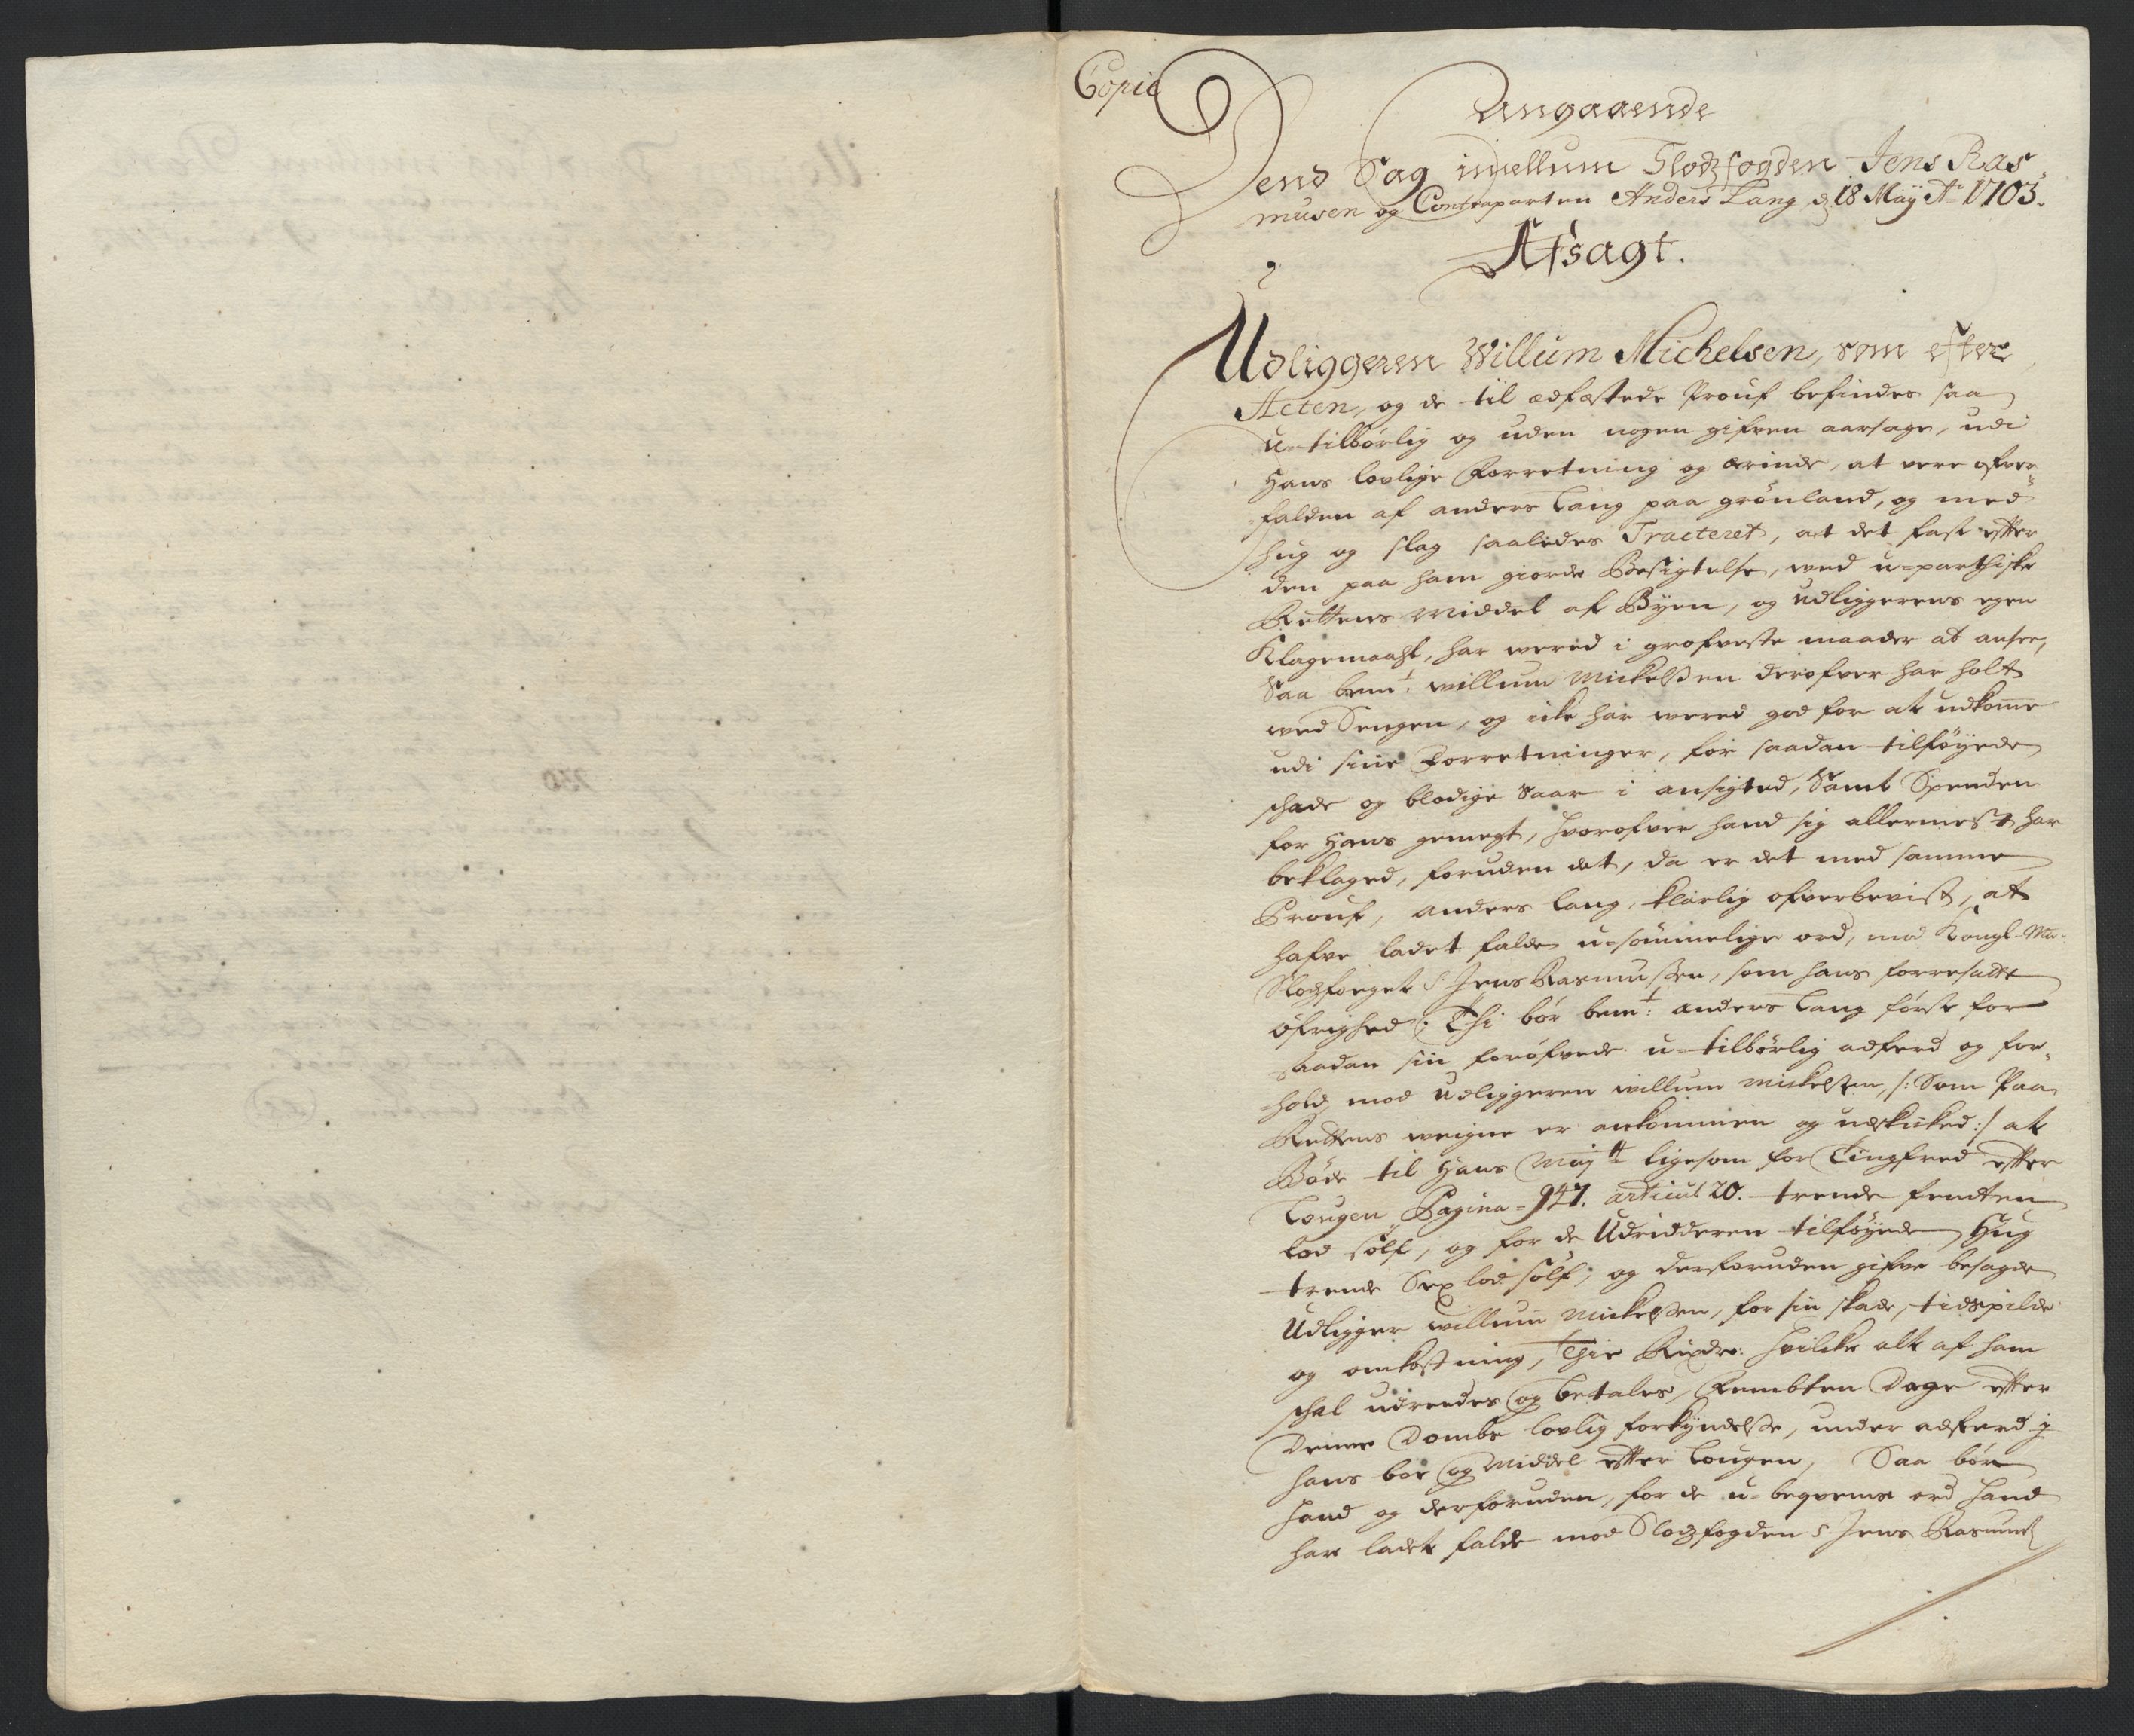 Copie
Angaaende
Dend Sag imellum Slodzfogden Jens Ras¬
musen og Contraparten Anders Lang d 18 Maÿ Ao 1703.
Afsagt.
Udliggeren Willum Michelsen, som efter
Acten, og de til ædfæstede Prouf befindes saa
u-tilbørlig og uden nogen gifven aarsage, udi
Hans lovlige Forretning og ærinde, at vere ofver¬
falden af anders Lang paa grønland, og med
hug og slag saaledes Tracteret, at det fast effter
den paa ham giorde Besigtelse, ved u-parthiske
Rettens Middel af Byen, og udliggerens egen
Klagemaahl, har wered i grofveste maader at ansee,
Saa bemt: willum Mickelsen derofver har holt
ved Sengen, og icke har wered god for at udkome
udi sine Forretninger, for saadan tilføyede
schade og blodige Saar i ansigted, Samt Spenden
for Hans gemegt, hvorofver hand sig allermest har
beklaged, foruden det, da er det med samme
Prouf, anders lang, klarlig ofverbevist, at
hafve ladet falde u-sømmelige ord, mod Kongl- Ma:
Slodzfoeget Sr Jens Rasmussen, som hans forresatte
øfrighed; Thi bør bemt: anders Lang først for
saadan sin forøfvede u-tilbørlig adferd og for¬
hold, mod udliggeren willum Mickelsen, /: Som Paa
Rettens weigne er ankommen og udskicked :/ at
Bøde til Hans Maytt ligesom for Tingfred effter
Lougen Pagina - 947. articul 20. trende femten
lod sølf, og for de Udridderen tilføyede Hug
trende Sex lod sølf, og derforuden gifve besagde
Udligger willum Mickelsen, for sin skade, tidspilde
og omkostning, Thie Rixdr: hvilcke alt af ham
schal udreedes og betales, Fembten Dage effter
Denne Dombs lovlig forkyndelse, under adferd i
hans boe og Middel effter Lougen, Saa bør
hand og derforuden, for de u-beqveme ord hand
har ladet falde mod Slodzfogden Sr Jens Rasmus